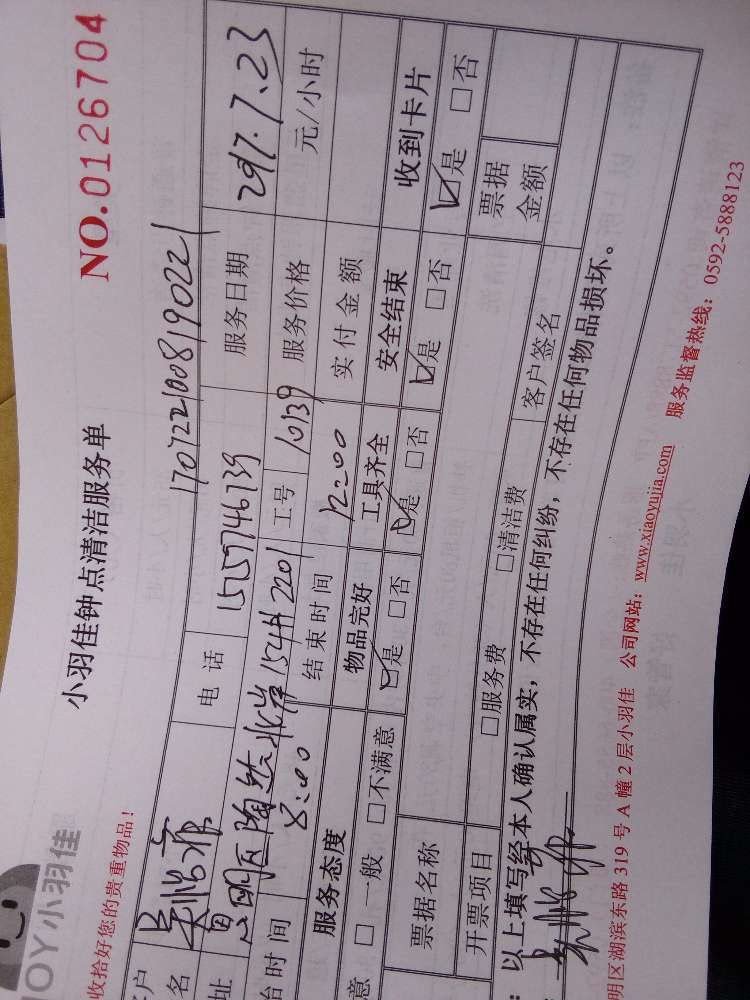 JOY小羽佳
小羽佳钟点清洁服务单
NO.0126704
收拾好您的贵重物品!
170722100819022
户 电话 15159746739 服务日期 2017.7.23
名
址 工号 10139 服务价格 元/小时
始时间 8:00 结束时间 12:00 实付金额
服务态度 物品完好 工具齐全 安全结束 收到卡片
意 □一般 □不满意 ☑是 □否 ☑是 □否 ☑是 □否 ☑是 □否
票据名称 票据金额
开票项目 □服务费 □清洁费
:以上填写经本人确认属实,不存在任何纠纷,不存在任何物品损坏。
客户签名
明区湖滨东路 319 号 A 幢 2 层小羽佳 公司网站:www.xiaoyujia.com 服务监督热线:0592-5888123